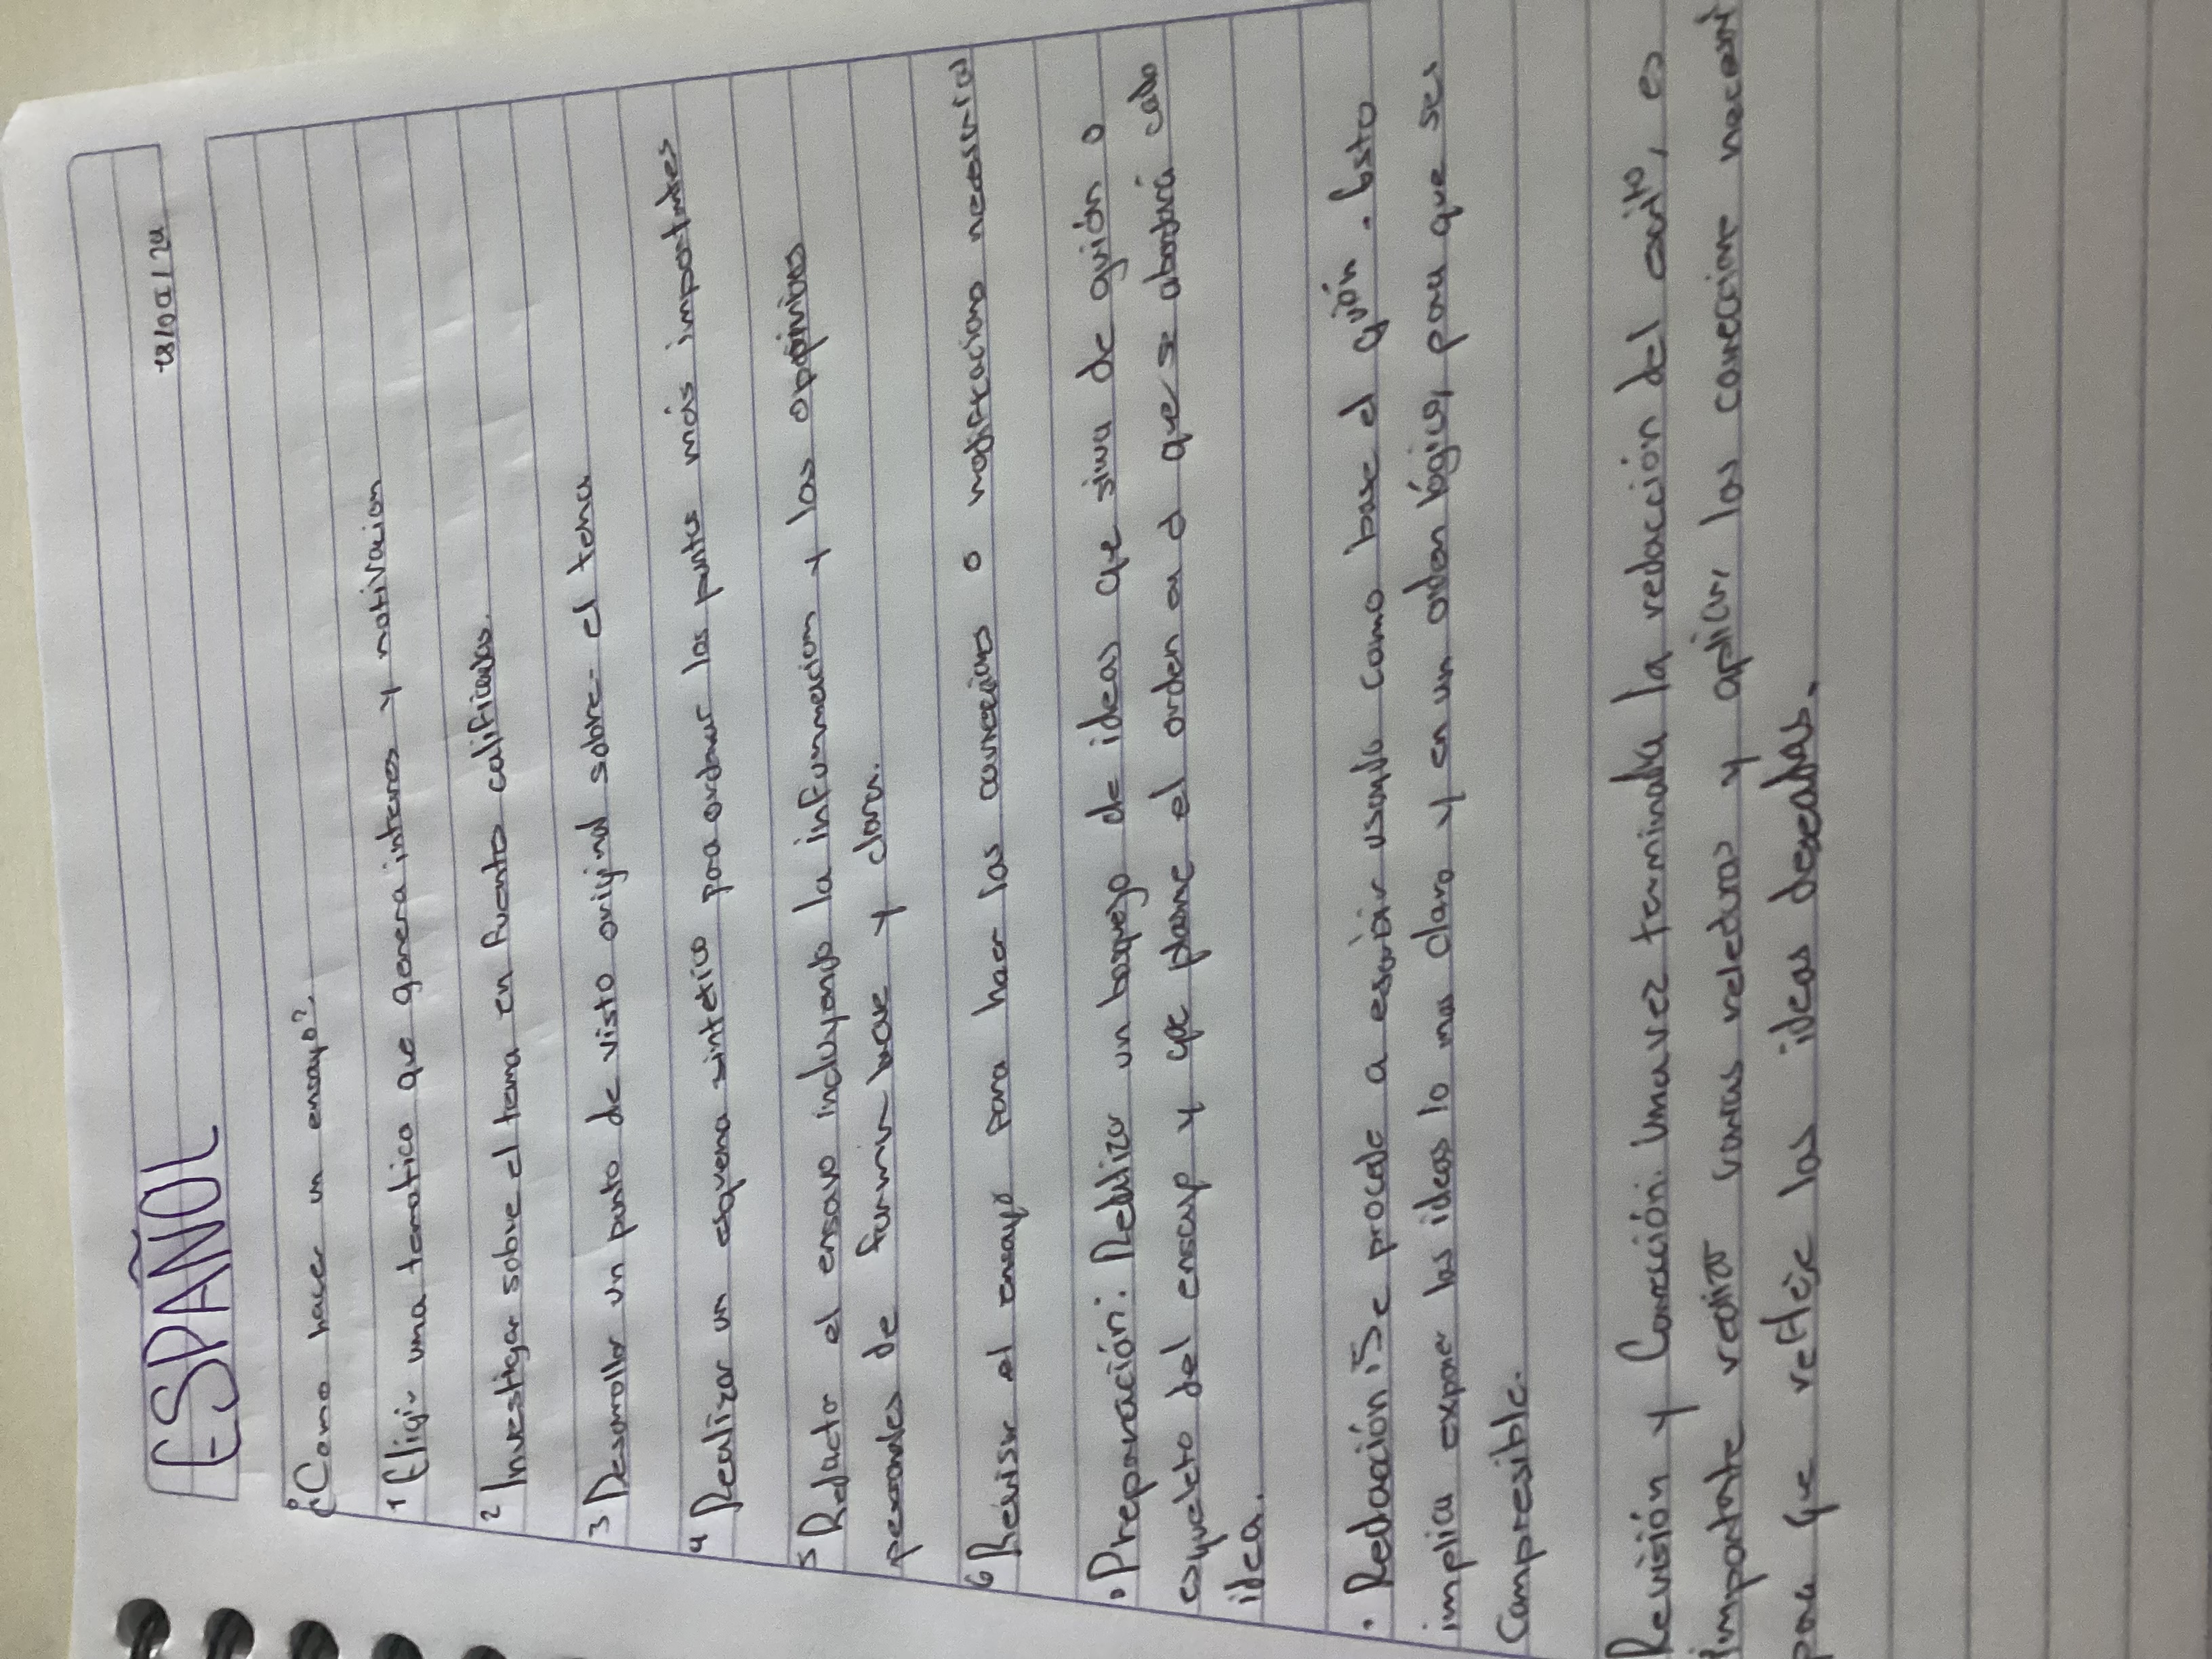 ESPAÑOL
¿Como hacer un ensayo?
1 Eligir una tematica que genera interes y motivacion
2 Investigar sobre el tema en fuentes calificadas.
3 Desarrollar un punto de visto original sobre el tema
4 Realizar un esquema sintetico para ordenar los puntos más importantes
5 Redactar el ensayo incluyendo la informacion y las opiniones
personales de forma breve y clara.
6 Revisar el ensayo para hacer las correciones o modificaciones necesarias
• Preparación: Realizar un boquejo de ideas que sirva de guión o
esqueleto del ensayo y que plasme el orden en el que se abordará cada
idea.
• Redacción: Se procede a escribir usando como base el guión. Esto
implica exponer las ideas lo mas claro y en un orden lógico, para que sea
Compresible.
Revisión y Corrección: Una vez terminada la redacción del, es
importante realizar varias relecturas y aplicar las correccione necesari
para que refleje las ideas deseadas.